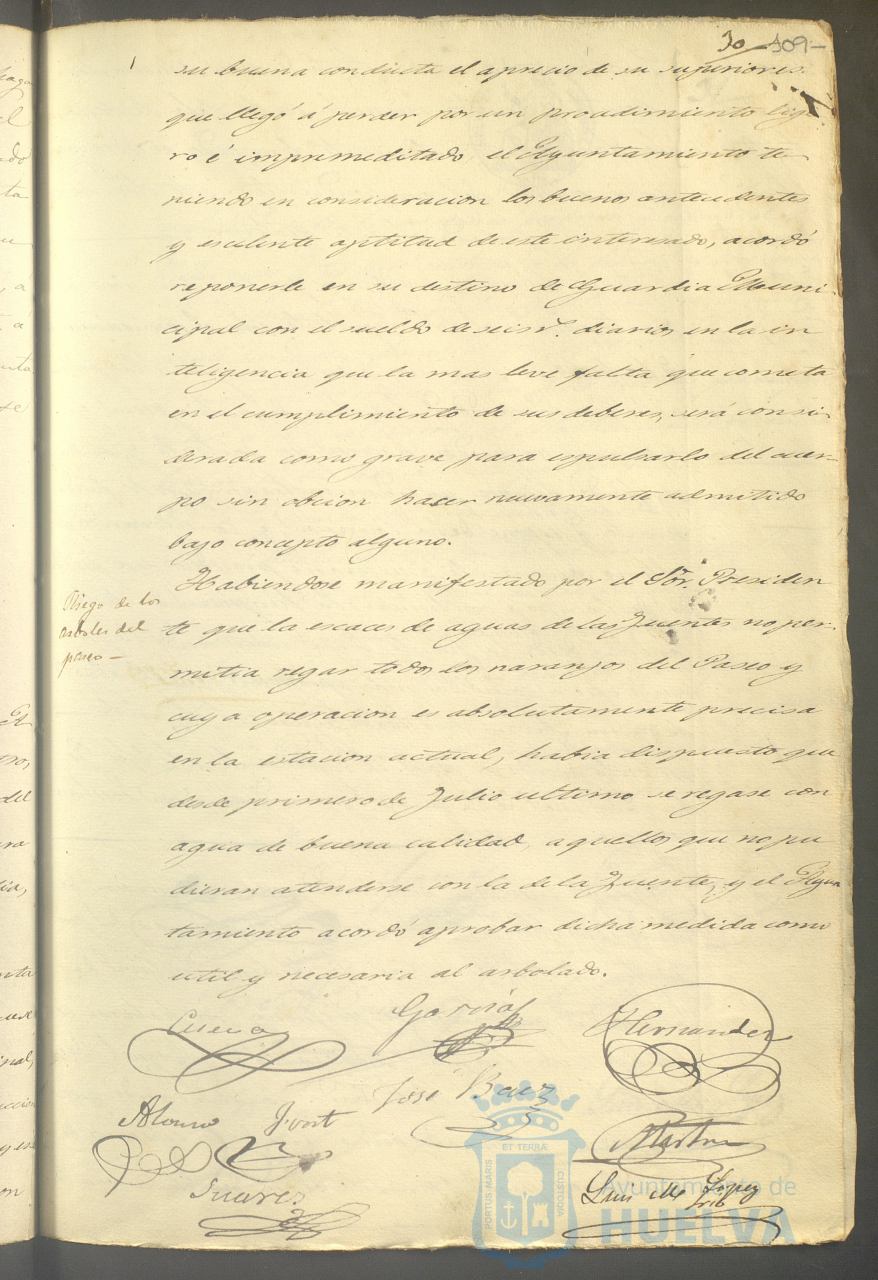 30 109-
su buena conducta el aprecio de su superiores
que llegó á perder por un procidimiento lige
ro é impremeditado, el Ayuntamiento te
niendo en consideracion los buenos antecedentes
y esculente aptitud de este interesado, acordó
reponerle en su destino de Guardia Muni-
cipal con el sueldo de seis r.^s diarios en la in
teligencia que la mas leve falta que cometa
en el cumplimiento de sus deberes, será consi-
derada como grave para espulsarlo del cuer-
po sin obcion haser nuevamente admitido
bajo concepto alguno.
Riego de los
arboles del
paseo -
Habiendose manifestado por el Sõr. Presiden
te que la escaces de aguas de las Fuentes no per-
mitia regar todos los naranjos del Paseo y
cuya operacion es absolutamente precisa
en la estacion actual, habia dispuesto que
desde primero de Julio ultimo se regase con
agua de buena calidad, aquellos que no pu
dieran atenderse con la de la Fuente, y el Ayun
tamiento acordó aprobar dicha medida como
util y necesaria al arbolado.
Cueva Garcia Hernandez
Alonso José Baez
Suares Luis M. Lopez
Srio
ET TERRÆ
PORTUS MARIS
CUSTODIA
Ayuntamiento de
HUELVA